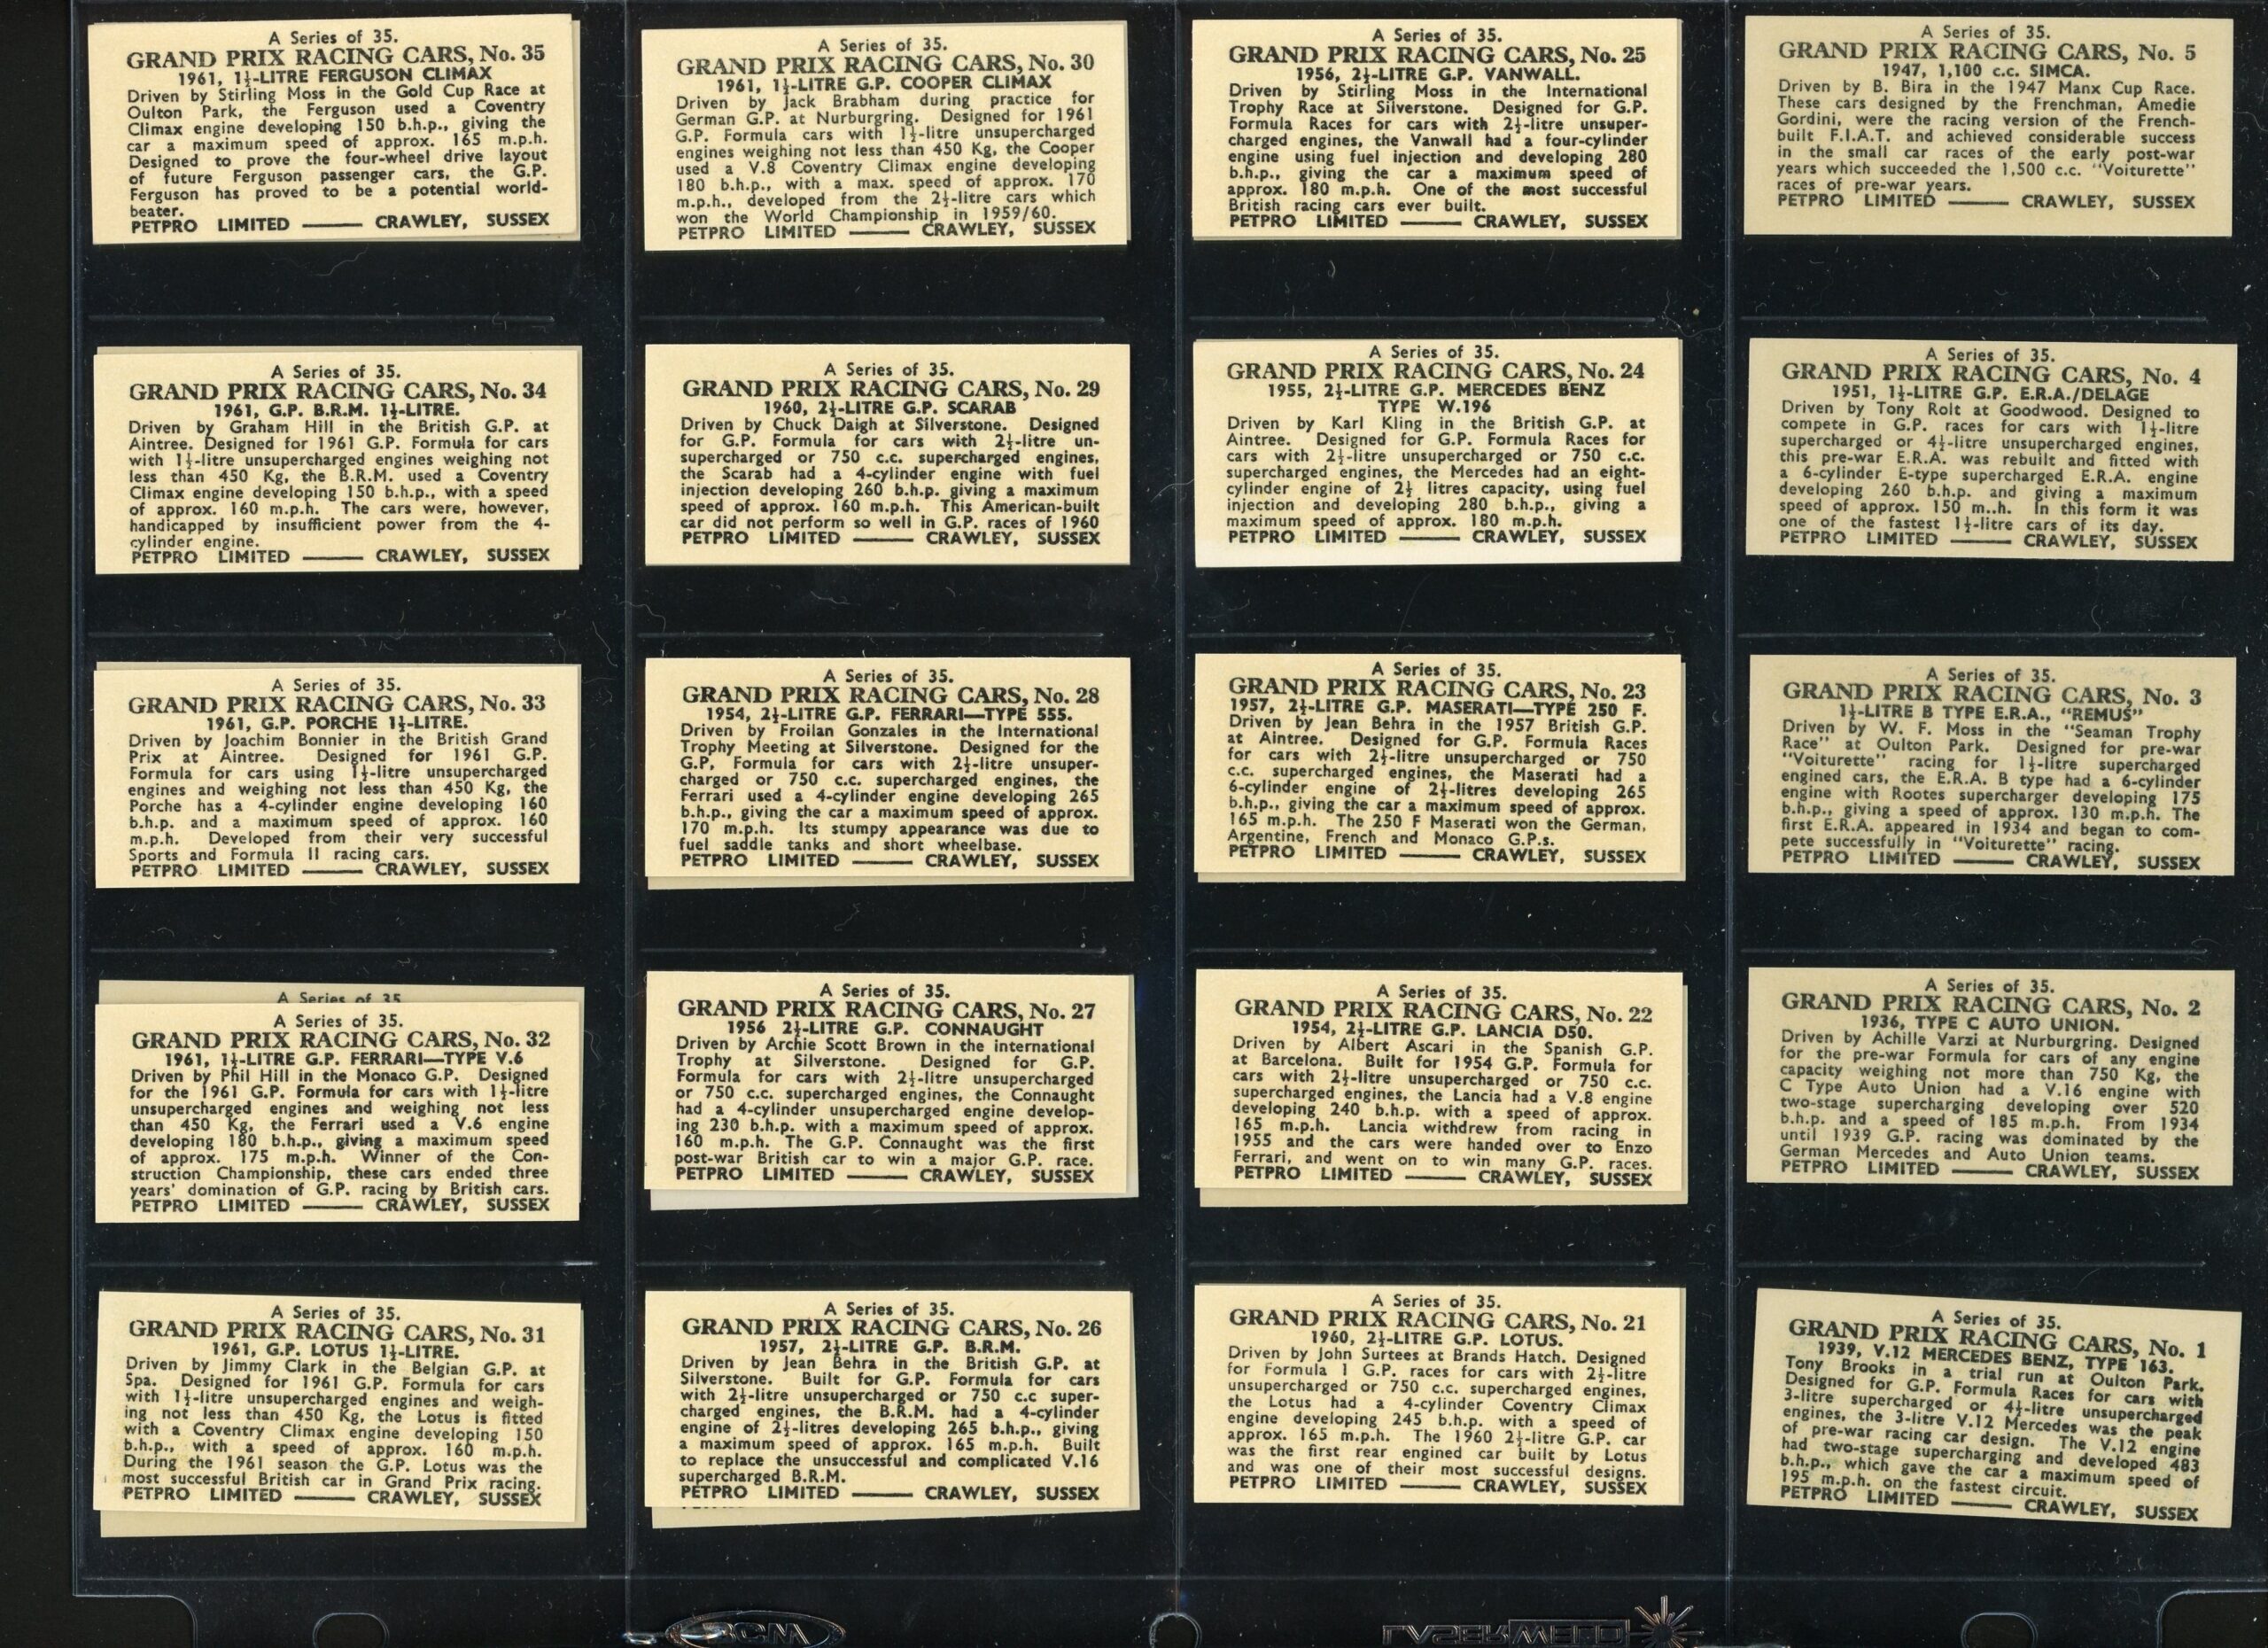 A Series of 35.
GRAND PRIX RACING CARS, No. 35
1961, 1½-LITRE FERGUSON CLIMAX
Driven by Stirling Moss in the Gold Cup Race at
Oulton Park, the Ferguson used a Coventry
Climax engine developing 150 b.h.p., giving the
car a maximum speed of approx. 165 m.p.h.
Designed to prove the four-wheel drive layout
of future Ferguson passenger cars, the G.P.
Ferguson has proved to be a potential world-
beater.
PETPRO LIMITED —— CRAWLEY, SUSSEX
A Series of 35.
GRAND PRIX RACING CARS, No. 34
1961, G.P. B.R.M. 1½-LITRE.
Driven by Graham Hill in the British G.P. at
Aintree. Designed for 1961 G.P. Formula for cars
with 1½-litre unsupercharged engines weighing not
less than 450 Kg, the B.R.M. used a Coventry
Climax engine developing 150 b.h.p., with a speed
of approx. 160 m.p.h. The cars were, however,
handicapped by insufficient power from the 4-
cylinder engine.
PETPRO LIMITED —— CRAWLEY, SUSSEX
A Series of 35.
GRAND PRIX RACING CARS, No. 33
1961, G.P. PORCHE 1½-LITRE.
Driven by Joachim Bonnier in the British Grand
Prix at Aintree. Designed for 1961 G.P.
Formula for cars using 1½-litre unsupercharged
engines and weighing not less than 450 Kg, the
Porche has a 4-cylinder engine developing 160
b.h.p. and a maximum speed of approx. 160
m.p.h. Developed from their very successful
Sports and Formula II racing cars.
PETPRO LIMITED —— CRAWLEY, SUSSEX
A Series of 35
A Series of 35.
GRAND PRIX RACING CARS, No. 32
1961, 1½-LITRE G.P. FERRARI—TYPE V.6
Driven by Phil Hill in the Monaco G.P. Designed
for the 1961 G.P. Formula for cars with 1½-litre
unsupercharged engines and weighing not less
than 450 Kg, the Ferrari used a V.6 engine
developing 180 b.h.p., giving a maximum speed
of approx. 175 m.p.h. Winner of the Con-
struction Championship, these cars ended three
years' domination of G.P. racing by British cars.
PETPRO LIMITED —— CRAWLEY, SUSSEX
A Series of 35.
GRAND PRIX RACING CARS, No. 31
1961, G.P. LOTUS 1½-LITRE.
Driven by Jimmy Clark in the Belgian G.P. at
Spa. Designed for 1961 G.P. Formula for cars
with 1½-litre unsupercharged engines and weigh-
ing not less than 450 Kg, the Lotus is fitted
with a Coventry Climax engine developing 150
b.h.p., with a speed of approx. 160 m.p.h.
During the 1961 season the G.P. Lotus was the
most successful British car in Grand Prix racing.
PETPRO LIMITED —— CRAWLEY, SUSSEX
A Series of 35.
GRAND PRIX RACING CARS, No. 30
1961, 1½-LITRE G.P. COOPER CLIMAX
Driven by Jack Brabham during practice for
German G.P. at Nurburgring. Designed for 1961
G.P. Formula cars with 1½-litre unsupercharged
engines weighing not less than 450 Kg, the Cooper
used a V.8 Coventry Climax engine developing
180 b.h.p., with a max. speed of approx. 170
m.p.h., developed from the 2½-litre cars which
won the World Championship in 1959/60.
PETPRO LIMITED —— CRAWLEY, SUSSEX
A Series of 35.
GRAND PRIX RACING CARS, No. 29
1960, 2½-LITRE G.P. SCARAB
Driven by Chuck Daigh at Silverstone. Designed
for G.P. Formula for cars with 2½-litre un-
supercharged or 750 c.c. supercharged engines,
the Scarab had a 4-cylinder engine with fuel
injection developing 260 b.h.p. giving a maximum
speed of approx. 160 m.p.h. This American-built
car did not perform so well in G.P. races of 1960
PETPRO LIMITED —— CRAWLEY, SUSSEX
A Series of 35.
GRAND PRIX RACING CARS, No. 28
1954, 2½-LITRE G.P. FERRARI—TYPE 555.
Driven by Froilan Gonzales in the International
Trophy Meeting at Silverstone. Designed for the
G.P. Formula for cars with 2½-litre unsuper-
charged or 750 c.c. supercharged engines, the
Ferrari used a 4-cylinder engine developing 265
b.h.p., giving the car a maximum speed of approx.
170 m.p.h. Its stumpy appearance was due to
fuel saddle tanks and short wheelbase.
PETPRO LIMITED —— CRAWLEY, SUSSEX
A Series of 35.
GRAND PRIX RACING CARS, No. 27
1956 2½-LITRE G.P. CONNAUGHT
Driven by Archie Scott Brown in the international
Trophy at Silverstone. Designed for G.P.
Formula for cars with 2½-litre unsupercharged
or 750 c.c. supercharged engines, the Connaught
had a 4-cylinder unsupercharged engine develop-
ing 230 b.h.p. with a maximum speed of approx.
160 m.p.h. The G.P. Connaught was the first
post-war British car to win a major G.P. race.
PETPRO LIMITED —— CRAWLEY, SUSSEX
A Series of 35.
GRAND PRIX RACING CARS, No. 26
1957, 2½-LITRE G.P. B.R.M.
Driven by Jean Behra in the British G.P. at
Silverstone. Built for G.P. Formula for cars
with 2½-litre unsupercharged or 750 c.c super-
charged engines, the B.R.M. had a 4-cylinder
engine of 2½-litres developing 265 b.h.p., giving
a maximum speed of approx. 165 m.p.h. Built
to replace the unsuccessful and complicated V.16
supercharged B.R.M.
PETPRO LIMITED —— CRAWLEY, SUSSEX
A Series of 35.
GRAND PRIX RACING CARS, No. 25
1956, 2½-LITRE G.P. VANWALL.
Driven by Stirling Moss in the International
Trophy Race at Silverstone. Designed for G.P.
Formula Races for cars with 2½-litre unsuper-
charged engines, the Vanwall had a four-cylinder
engine using fuel injection and developing 280
b.h.p., giving the car a maximum speed of
approx. 180 m.p.h. One of the most successful
British racing cars ever built.
PETPRO LIMITED —— CRAWLEY, SUSSEX
A Series of 35.
GRAND PRIX RACING CARS, No. 24
1955, 2½-LITRE G.P. MERCEDES BENZ
TYPE W.196
Driven by Karl Kling in the British G.P. at
Aintree. Designed for G.P. Formula Races for
cars with 2½-litre unsupercharged or 750 c.c.
supercharged engines, the Mercedes had an eight-
cylinder engine of 2½ litres capacity, using fuel
injection and developing 280 b.h.p., giving a
maximum speed of approx. 180 m.p.h.
PETPRO LIMITED —— CRAWLEY, SUSSEX
A Series of 35.
GRAND PRIX RACING CARS, No. 23
1957, 2½-LITRE G.P. MASERATI—TYPE 250 F.
Driven by Jean Behra in the 1957 British G.P.
at Aintree. Designed for G.P. Formula Races
for cars with 2½-litre unsupercharged or 750
c.c. supercharged engines, the Maserati had a
6-cylinder engine of 2½-litres developing 265
b.h.p., giving the car a maximum speed of approx.
165 m.p.h. The 250 F Maserati won the German,
Argentine, French and Monaco G.P.s.
PETPRO LIMITED —— CRAWLEY, SUSSEX
A Series of 35.
GRAND PRIX RACING CARS, No. 22
1954, 2½-LITRE G.P. LANCIA D50.
Driven by Albert Ascari in the Spanish G.P.
at Barcelona. Built for 1954 G.P. Formula for
cars with 2½-litre unsupercharged or 750 c.c.
supercharged engines, the Lancia had a V.8 engine
developing 240 b.h.p. with a speed of approx.
165 m.p.h. Lancia withdrew from racing in
1955 and the cars were handed over to Enzo
Ferrari, and went on to win many G.P. races.
PETPRO LIMITED —— CRAWLEY, SUSSEX
A Series of 35.
GRAND PRIX RACING CARS, No. 21
1960, 2½-LITRE G.P. LOTUS.
Driven by John Surtees at Brands Hatch. Designed
for Formula 1 G.P. races for cars with 2½-litre
unsupercharged or 750 c.c. supercharged engines,
the Lotus had a 4-cylinder Coventry Climax
engine developing 245 b.h.p. with a speed of
approx. 165 m.p.h. The 1960 2½-litre G.P. car
was the first rear engined car built by Lotus
and was one of their most successful designs.
PETPRO LIMITED —— CRAWLEY, SUSSEX
A Series of 35.
GRAND PRIX RACING CARS, No. 5
1947, 1,100 c.c. SIMCA.
Driven by B. Bira in the 1947 Manx Cup Race.
These cars designed by the Frenchman, Amedie
Gordini, were the racing version of the French-
built F.I.A.T. and achieved considerable success
in the small car races of the early post-war
years which succeeded the 1,500 c.c. "Voiturette"
races of pre-war years.
PETPRO LIMITED —— CRAWLEY, SUSSEX
A Series of 35.
GRAND PRIX RACING CARS, No. 4
1951, 1½-LITRE G.P. E.R.A./DELAGE
Driven by Tony Rolt at Goodwood. Designed to
compete in G.P. races for cars with 1½-litre
supercharged or 4½-litre unsupercharged engines,
this pre-war E.R.A. was rebuilt and fitted with
a 6-cylinder E-type supercharged E.R.A. engine
developing 260 b.h.p. and giving a maximum
speed of approx. 150 m..h. In this form it was
one of the fastest 1½-litre cars of its day.
PETPRO LIMITED —— CRAWLEY, SUSSEX
A Series of 35.
GRAND PRIX RACING CARS, No. 3
1½-LITRE B TYPE E.R.A., "REMUS"
Driven by W. F. Moss in the "Seaman Trophy
Race" at Oulton Park. Designed for pre-war
"Voiturette" racing for 1½-litre supercharged
engined cars, the E.R.A. B type had a 6-cylinder
engine with Rootes supercharger developing 175
b.h.p., giving a speed of approx. 130 m.p.h. The
first E.R.A. appeared in 1934 and began to com-
pete successfully in "Voiturette" racing.
PETPRO LIMITED —— CRAWLEY, SUSSEX
A Series of 35.
GRAND PRIX RACING CARS, No. 2
1936, TYPE C AUTO UNION.
Driven by Achille Varzi at Nurburgring. Designed
for the pre-war Formula for cars of any engine
capacity weighing not more than 750 Kg, the
C Type Auto Union had a V.16 engine with
two-stage supercharging developing over 520
b.h.p. and a speed of 185 m.p.h. From 1934
until 1939 G.P. racing was dominated by the
German Mercedes and Auto Union teams.
PETPRO LIMITED —— CRAWLEY, SUSSEX
A Series of 35.
GRAND PRIX RACING CARS, No. 1
1939, V.12 MERCEDES BENZ, TYPE 163.
Tony Brooks in a trial run at Oulton Park.
Designed for G.P. Formula Races for cars with
3-litre supercharged or 4½-litre unsupercharged
engines, the 3-litre V.12 Mercedes was the peak
of pre-war racing car design. The V.12 engine
had two-stage supercharging and developed 483
b.h.p., which gave the car a maximum speed of
195 m.p.h. on the fastest circuit.
PETPRO LIMITED —— CRAWLEY, SUSSEX
BCW
LASERWELD